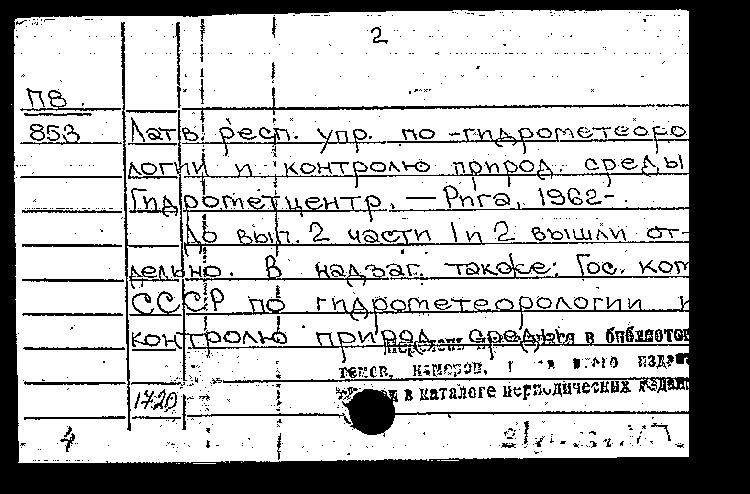 2
П8
853 Латв. респ. упр. по гидрометеоро
логии и контролю природ. среды
Гидрометцентр. — Рига, 1962-
До вып. 2 части 1 и 2 вышли от-
дельно. В надзаг. также: Гос. ком
СССР по гидрометеорологии и
контролю природ. среды
в библиотек
томов, номеров, издан
в каталоге периодических издан
1720
4